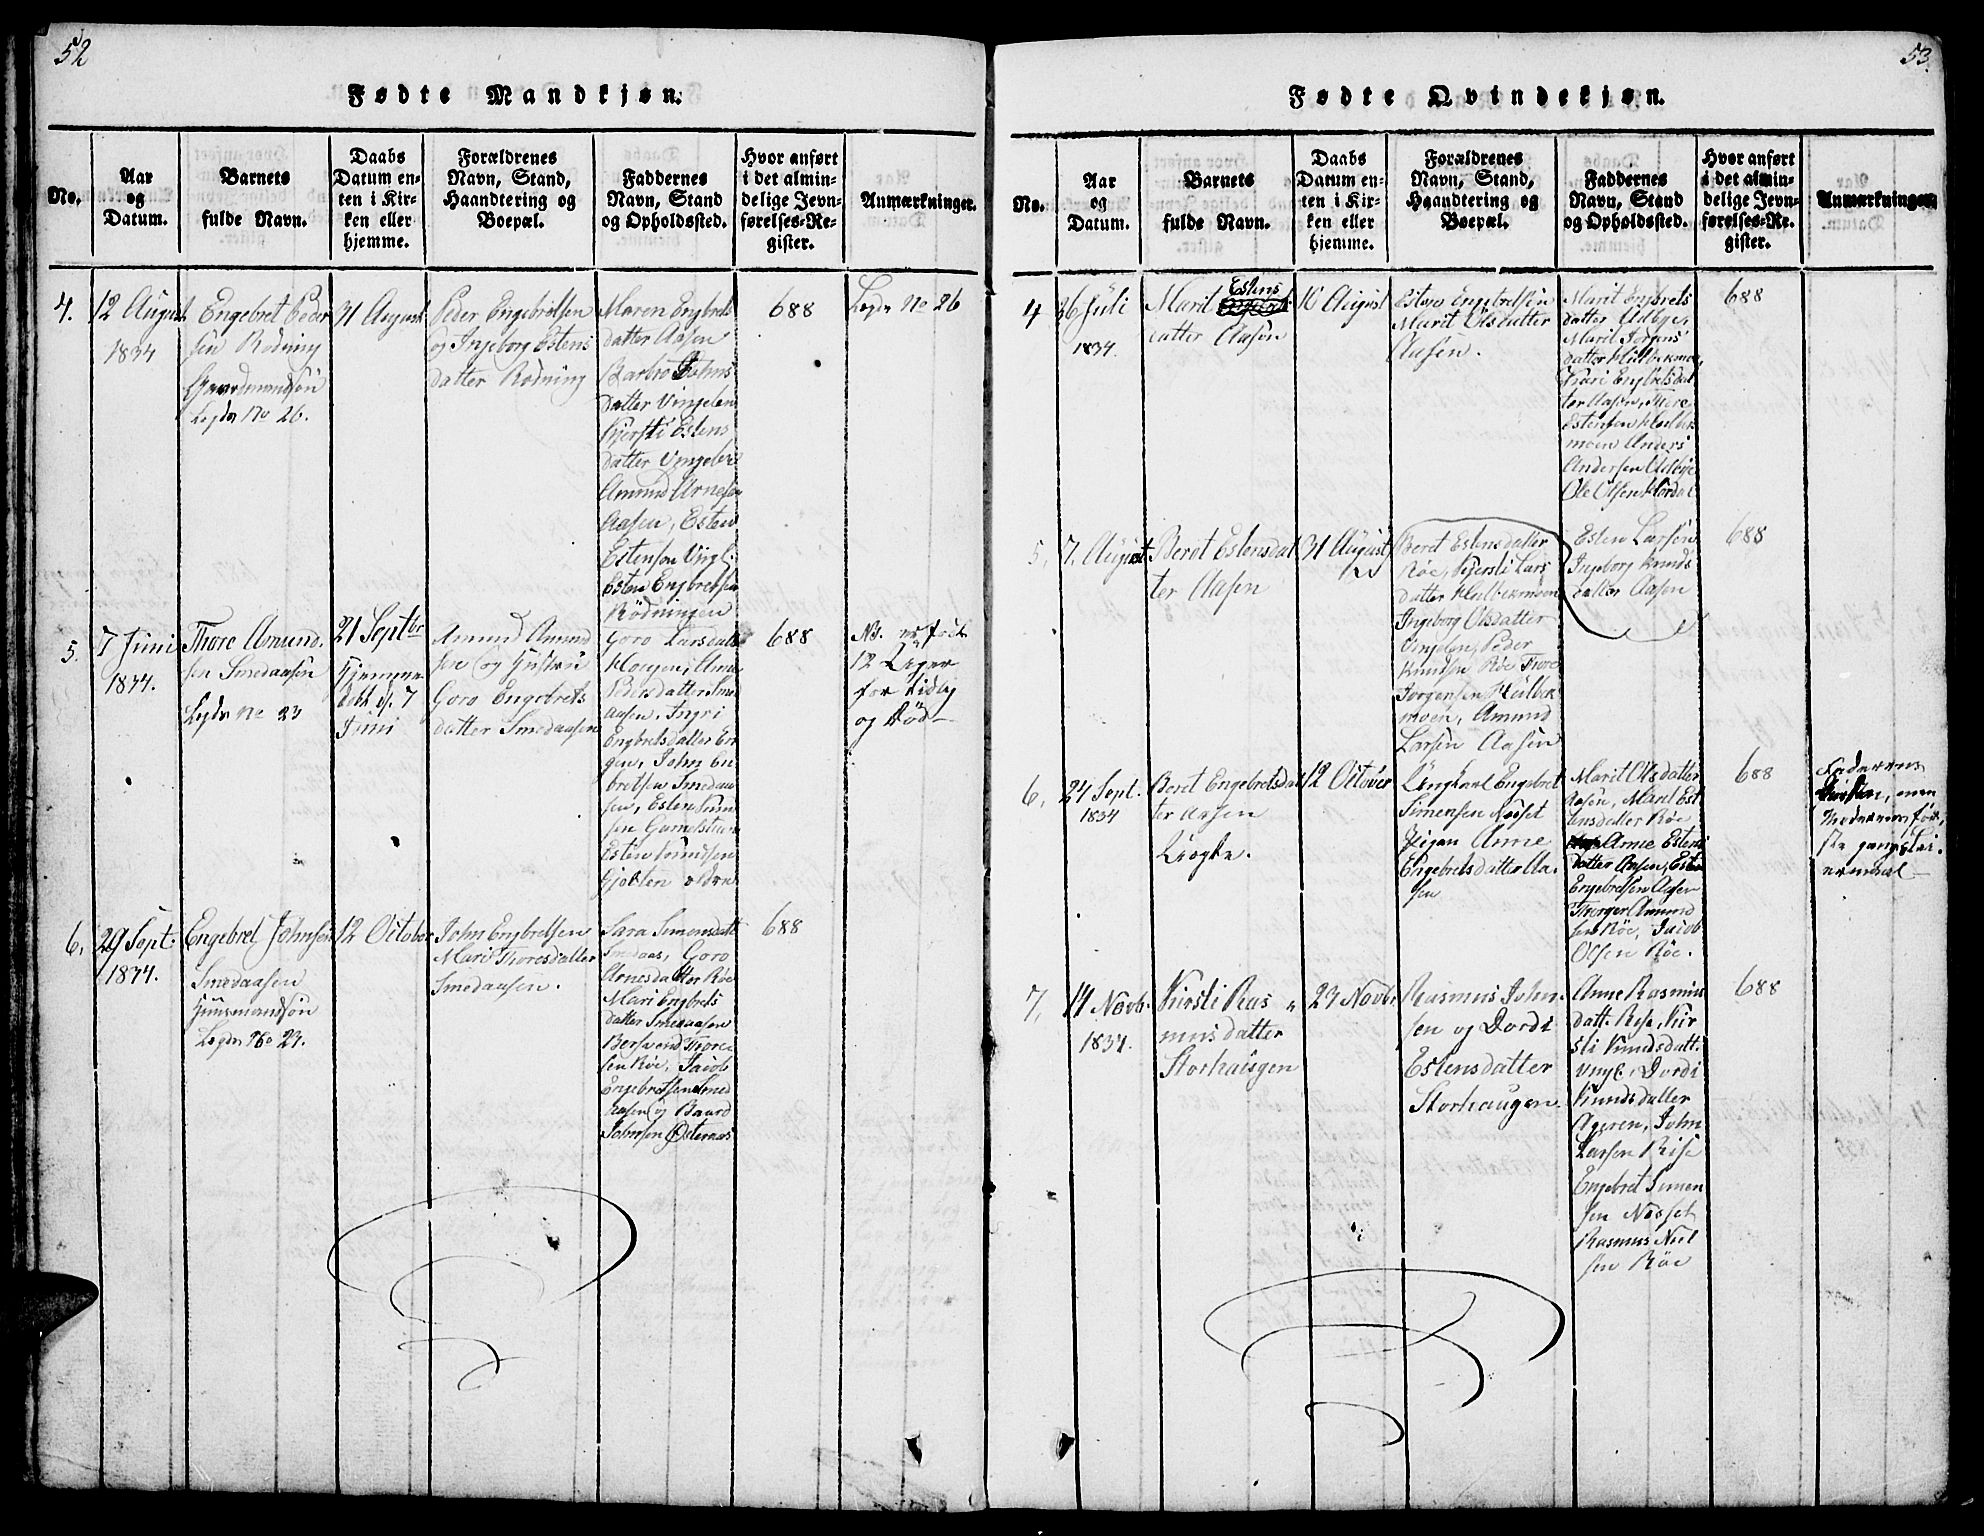 52
Fødte Mandkjøn.
No.
Aar
og
Datum.
Barnets
fulde Navn.
Daabs
Datum en-
ten i Kir-
ken eller
hjemme.
Forældrenes
Navn, Stand,
Haandtering og
Boepæl.
Faddernes
Navn, Stand
og Opholdssted.
Hvor anført
i det almin-
delige Jevn-
førelses-Re-
gister.
Anmærkninger.
4.
12 August
1834
Engebret Peder
sen Rödning
Gaardmandsön
Legdn No 26.
31 August
Peder Engebretsen
og Ingeborg Estens
datter Rödning
Maren Engbrets
datter Aasen
Barbro Johns
datter Vingelen
Kjersti Estens
datter Vingelen
Amund Arnesen
Aasen, Esten
Estensen Vingl.
Esten Engbretsen
Rödningen
688
Legdn No 26
5.
7 Juni
1834.
Thore Amund.
sen Smedaasen
Legdn No 23
21 Septbr
Hjemme
döbt d. 7
Juni
Amund Amund
sen og Hustru
Goro Engebrets
datter Smedaasen
Goro Larsdatter
Hougen, Anne
Pedersdatter Smed
aasen, Ingri
Engbretsdatter En
gen, John En
bretsen Smedaa
sen, Esten
sen
Esten Knudsen
688
No. födt
12 Uger
for tidlig
og död
6.
29 Sept.
1834.
Engebret Johnsen
Smedaasen
Huusmandsön
Legdn No 23.
12 October
John Engbretsen
Marit Thoresdatter
Smedaasen.
Sara Simensdatt
Smedaas, Goro
Arnesdatter Röe
Mari Engbrets
datter Smedaasen
Thore
sen Röe, Jacob
Engebretsen Smed
aasen og Baard
Johnsen Österaas
688
53.
Fødte Qvindekjøn.
No.
Aar
og
Datum.
Barnets
fulde Navn.
Daabs
Datum en-
ten i Kir-
ken eller
hjemme.
Forældrenes
Navn, Stand,
Haandtering og
Boepæl.
Faddernes
Navn, Stand
og Opholdssted.
Hvor anført
i det almin-
delige Jevn-
førelses-Re-
gister.
Anmærkninger.
4
26 Juli
1834.
Marit Estens
datter Aasen
10 August
Esten Engebretsen
Marit Olsdatter
Aasen.
Marit Engbrets
datter Udbye,
Marit Jorgens
datter Hulbekmoe,
Kari Engbretsdat
ter Aasen, Thore
Estensen Hulbek
moen Anders
Andersen Udbye
Ole Olsen
688
5.
7. August
Beret Estensdat
ter Aasen
31 August
Beret Estensdatter
Röe, Kjersti Lars
datter Hulbekmoen
Ingeborg Olsdatter
Vingelen, Peder
Knudsen Röe Thore
Jorgensen Hulbek
moen, Amund
Larsen Aasen
Esten Larsen
Ingeborg Knuds
datter Aasen
688
6.
24 Sept.
1834
Beret Engebretsdat
ter Aasen
Uægte.
12 October
Ungkarl Engebret
Simensen Nosset
Pigen Anne
Engebretsdatter Aa.
sen
Marit Olsdatter
Aasen, Marit Est
ensdatter Röe
Anne Estens
datter Aasen, Esten
Engebretsen Aasen
Thorger Amund
sen Röe, Jacob
Olsen Röe.
688
Faderens
men
Moderens för
ste gangs Lei
ermaal
7.
14 Novb.
1834.
Kirsti Ras
musdatter
Storhaugen
23 Novbr.
Rasmus John.
sen og Dordi
Estensdatter
Storhaugen.
Anne Rasmus
datt. Rise, Kir
sti Knudsdatt.
Vingl. Dordi
Knudsdatter
Ageren, John
Larsen Rise
Engebret Simen
sen Nosset
Rasmus Niel
sen Röe
688